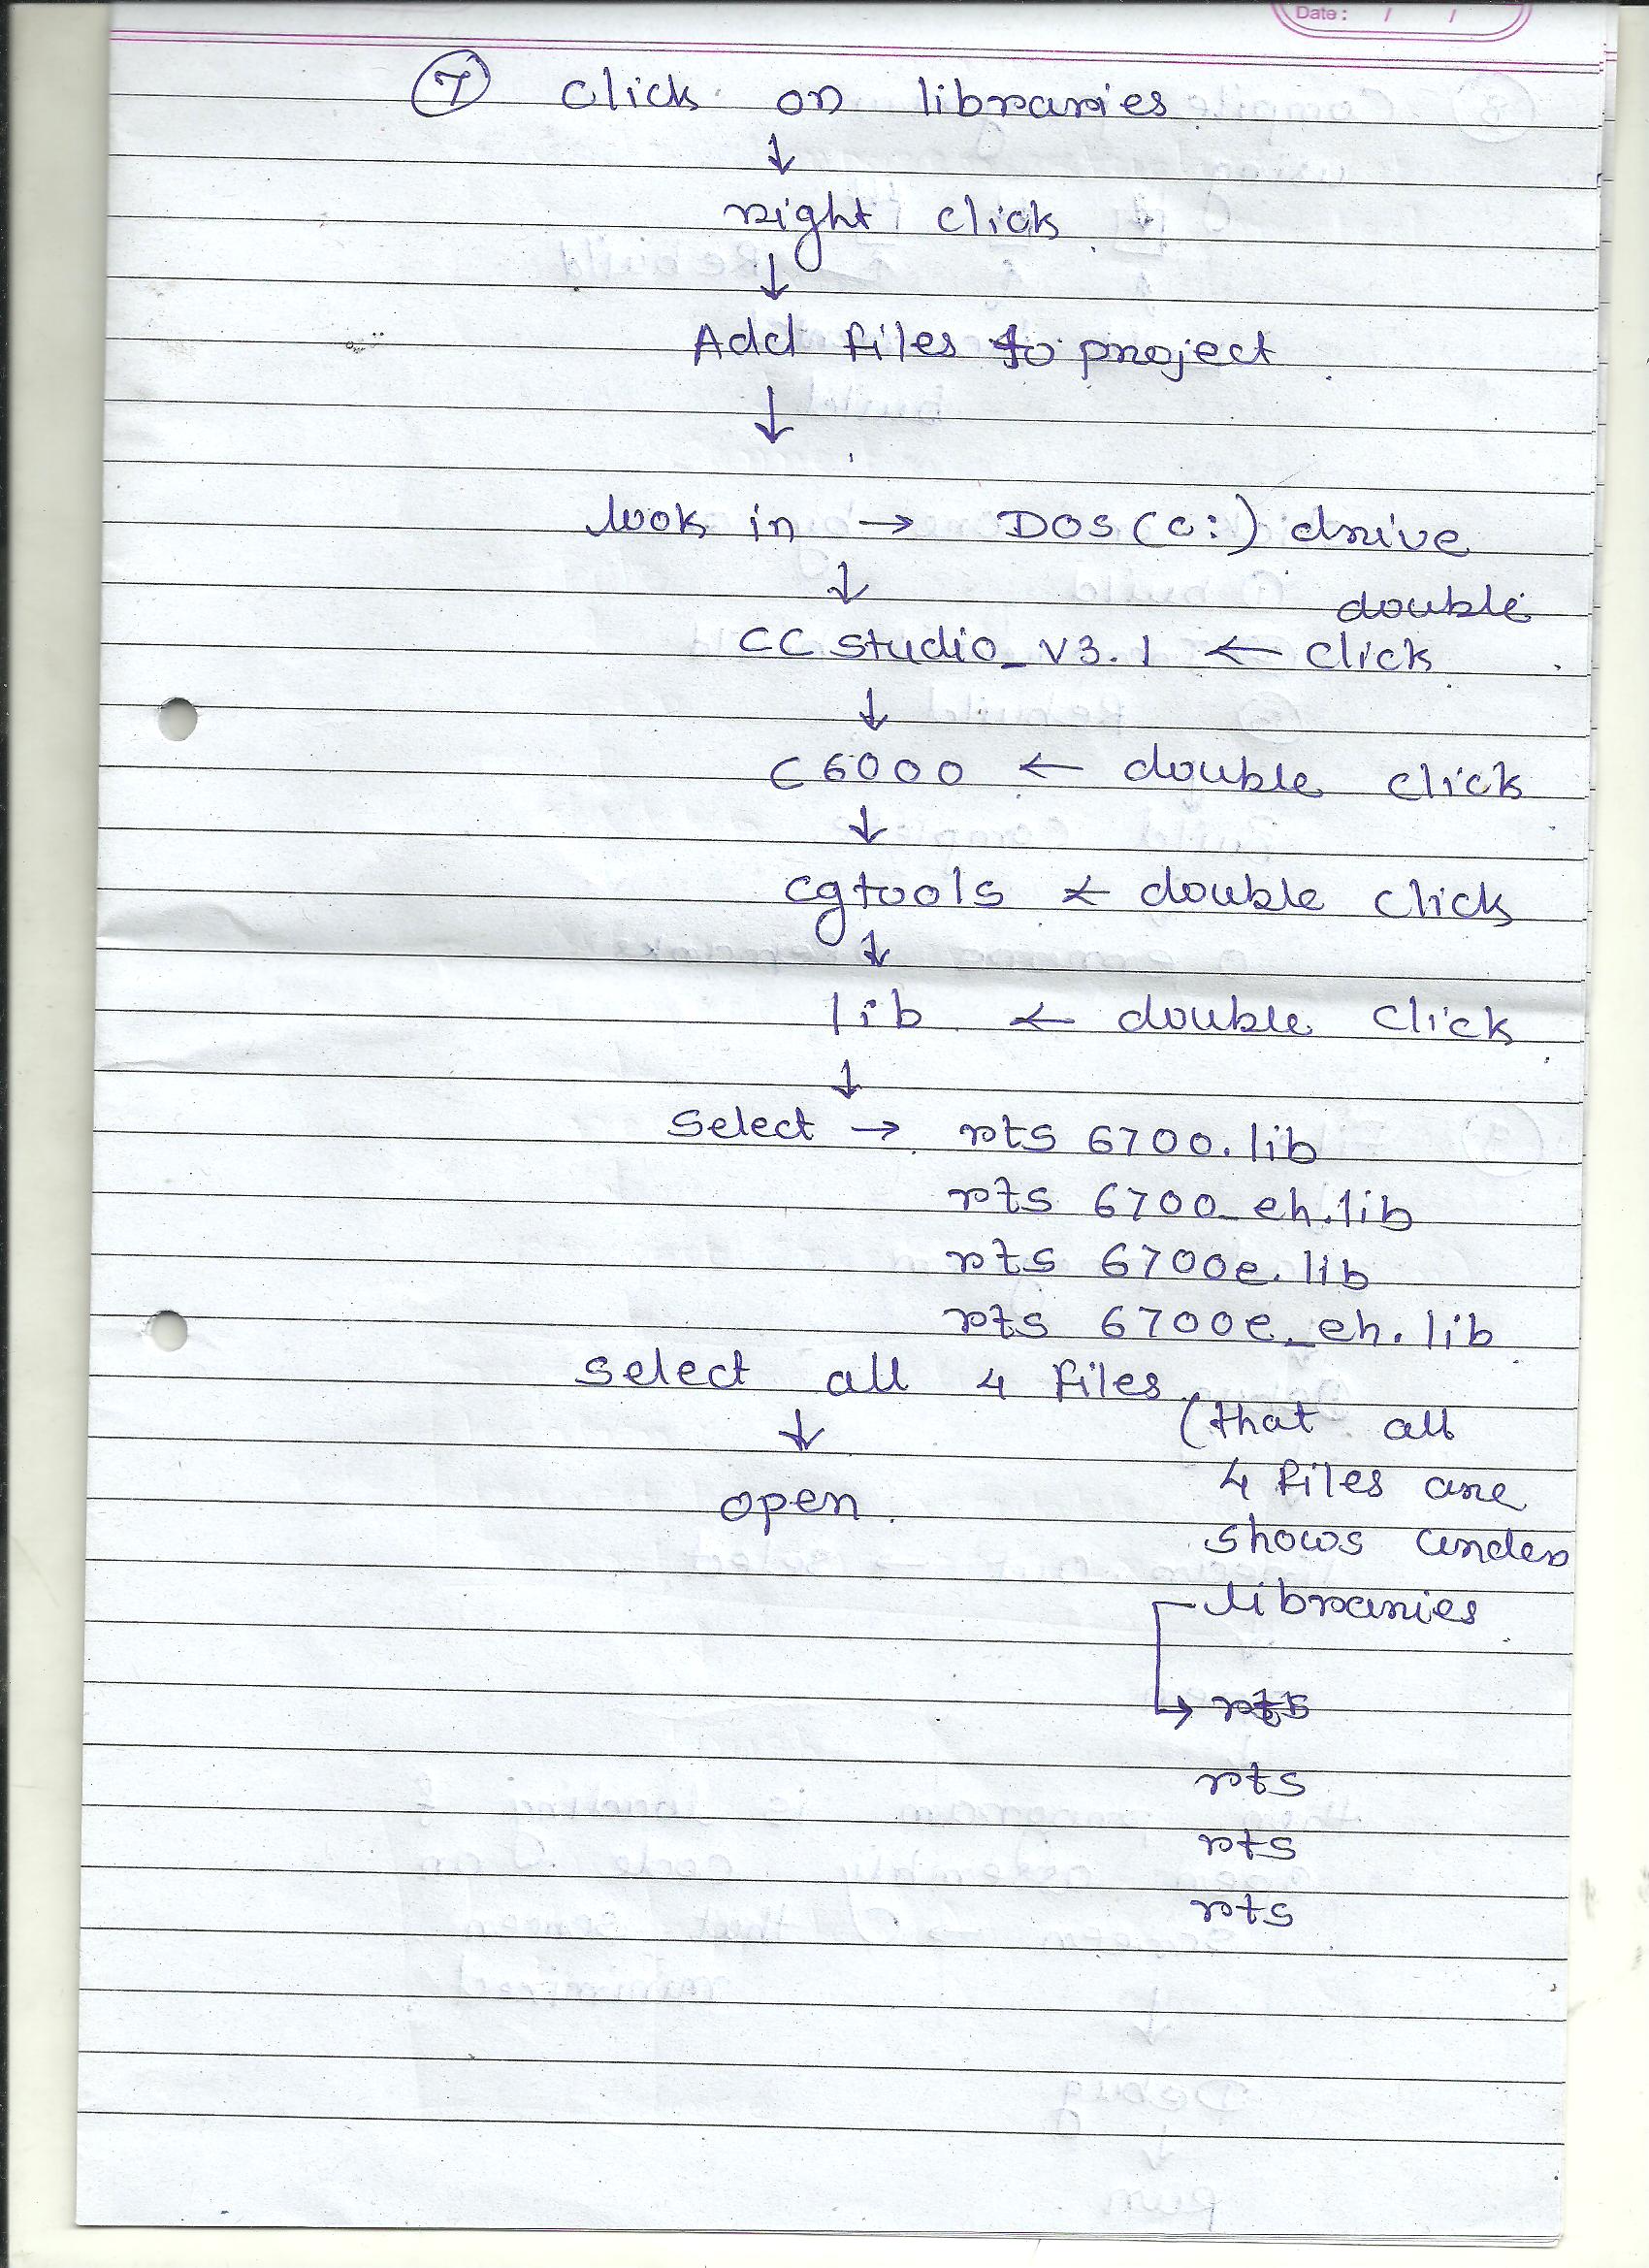 Date : / /
7 click on libraries
↓
right click
↓
Add files to project
↓
look in → DOS (c:) drive
↓
double
CC studio_v3.1 ← click
↓
C6000 ← double click
↓
cgtools ← double click
↓
lib ← double click
↓
Select → rts 6700.lib
rts 6700_eh.lib
rts 6700e.lib
rts 6700e_eh.lib
select all 4 files
↓
open.
(that all
4 files are
shows under
libraries
→ rts
rts
rts
rts